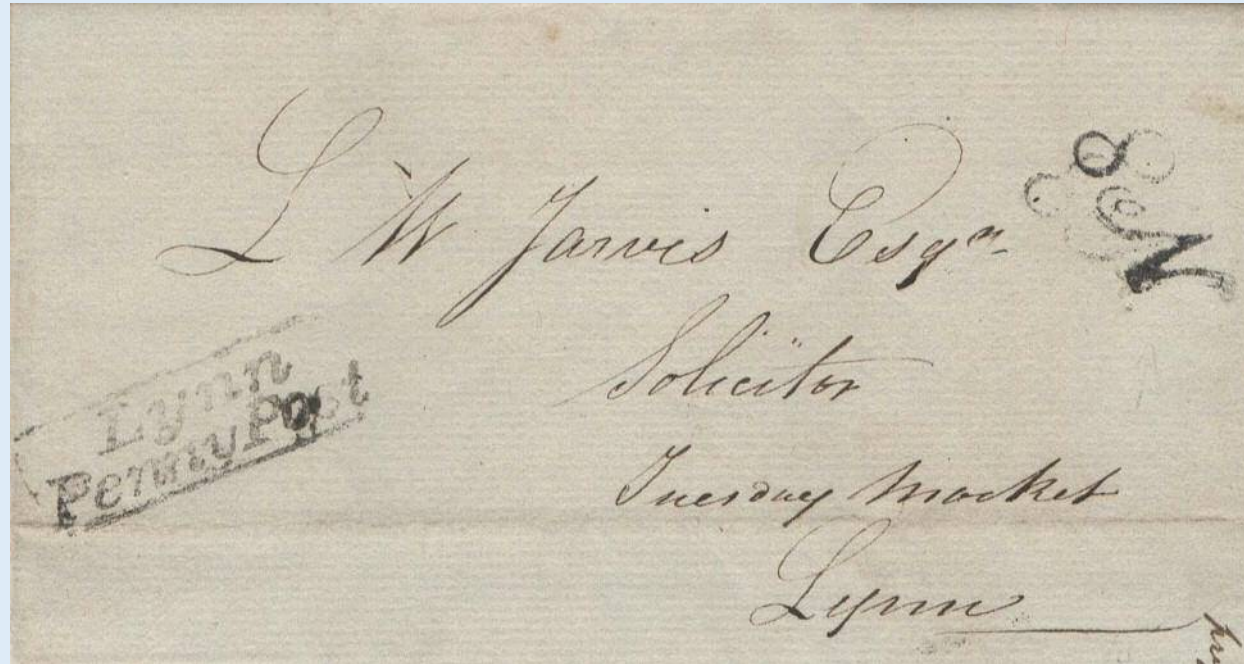 L W Jarvis Esqr
Solicitor
Tuesday Market
Lynn
Lynn
Penny Post